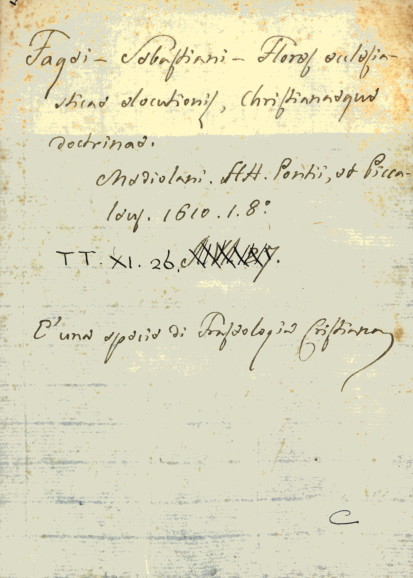 Fagei - Sebastiani - Flores ecclesia-
sticae elocutionis, Christianaeque
doctrinae.
Mediolani. HH. Pontii, et Picca-
leus. 1610. 1. 8°
TT. XI. 26.
E' una specie di Fraseologia Cristiana
C